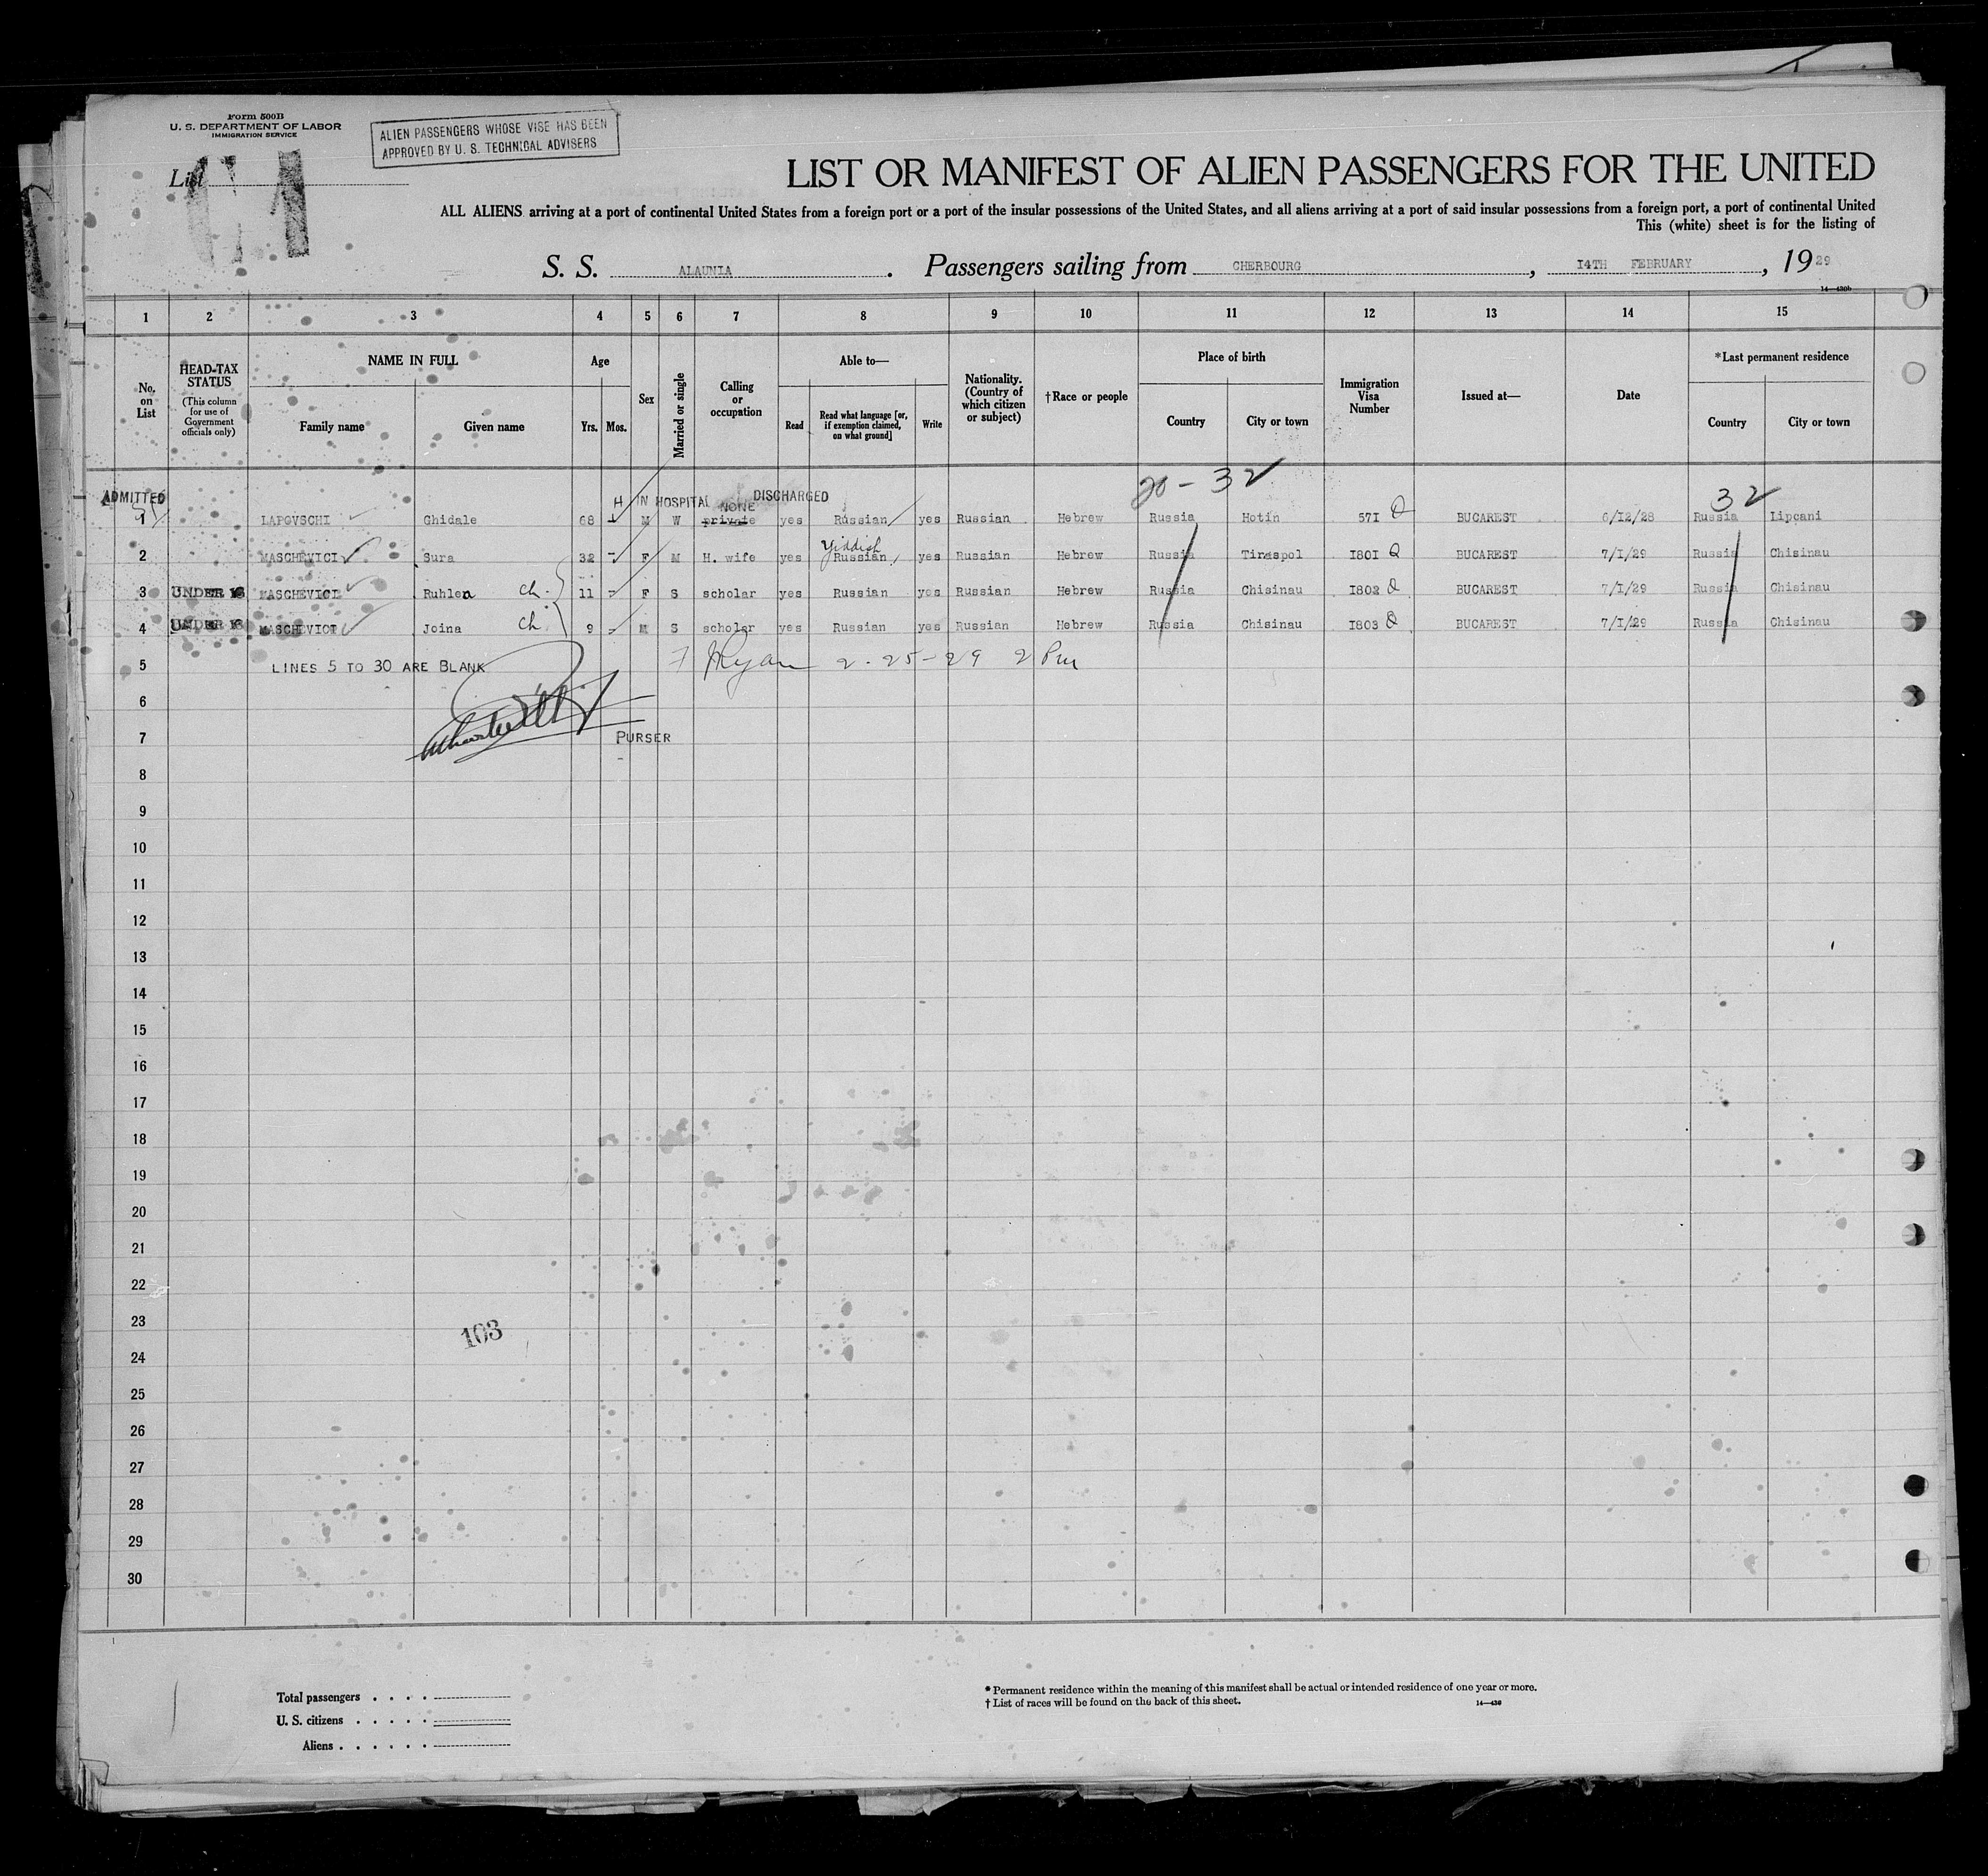 Form 500B
U. S. DEPARTMENT OF LABOR
IMMIGRATION SERVICE
ALIEN PASSENGERS WHOSE VISE HAS BEEN
APPROVED BY U. S. TECHNICAL ADVISERS
List
LIST OR MANIFEST OF ALIEN PASSENGERS FOR THE UNITED
ALL ALIENS arriving at a port of continental United States from a foreign port or a port of the insular possessions of the United States, and all aliens arriving at a port of said insular possessions from a foreign port, a port of continental United
This (white) sheet is for the listing of
S. S. ALAUNIA. Passengers sailing from CHERBOURG, I4TH FEBRUARY, 1929
14—430b
1 2 3 4 5 6 7 8 9 10 11 12 13 14 15
No. on List
HEAD-TAX STATUS (This column for use of Government officials only)
NAME IN FULL Family name Given name
Age Yrs. Mos.
Sex
Married or single
Calling or occupation
Able to— Read Read what language [or, if exemption claimed, on what ground] Write
Nationality. (Country of which citizen or subject)
†Race or people
Place of birth Country City or town
Immigration Visa Number
Issued at—
Date
*Last permanent residence Country City or town
20 - 32 32
ADMITTED H IN HOSPITAL DISCHARGED
NONE
1 LAPOVSCHI Ghidale 68 M W private yes Russian yes Russian Hebrew Russia Hotin 57I BUCAREST 6/I2/28 Russia Lipcani
Yiddish
2 MASCHEVICI Sura 32 - F M H. wife yes Russian yes Russian Hebrew Russia Tiraspol I80I BUCAREST 7/I/29 Russia Chisinau
3 UNDER 16 MASCHEVICI Ruhlea ch. 11 - F S scholar yes Russian yes Russian Hebrew Russia Chisinau I802 BUCAREST 7/I/29 Russia Chisinau
4 UNDER 16 MASCHEVICI Joina ch. 9 - M S scholar yes Russian yes Russian Hebrew Russia Chisinau I803 BUCAREST 7/I/29 Russia Chisinau
5 LINES 5 TO 30 ARE BLANK Ryan 2-25-29 2 Pm
6
7 PURSER
8
9
10
11
12
13
14
15
16
17
18
19
20
21
22
23
103
24
25
26
27
28
29
30
Total passengers . . . .
U. S. citizens . . . . .
Aliens . . . . . .
* Permanent residence within the meaning of this manifest shall be actual or intended residence of one year or more.
† List of races will be found on the back of this sheet. 14—430